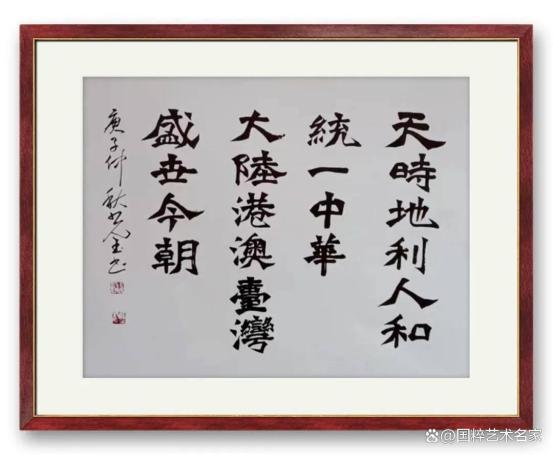 天時地利人和
統一中華
大陸港澳臺灣
盛世今朝
庚子仲秋
@国粹艺术名家